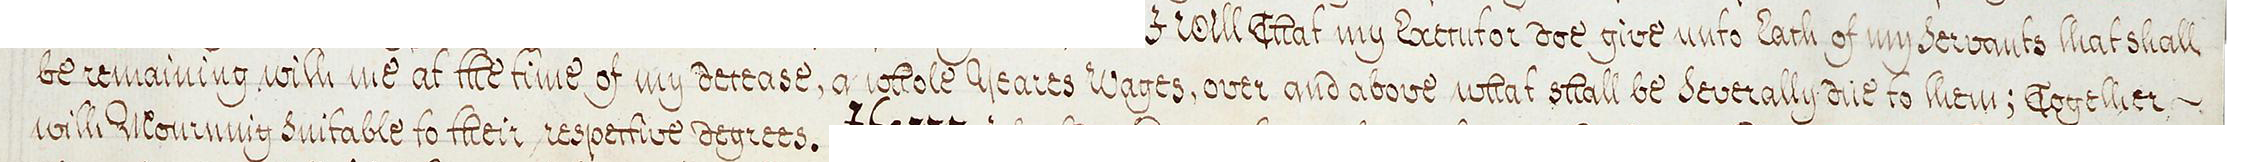 I Will That my Executor doe give unto Each of my Servants that shall
be remaining with me at the time of my decease, a whole Yeares Wages, over and above what shall be Severally due to them; Together ~
with Mourning Suitable to their respective degrees.